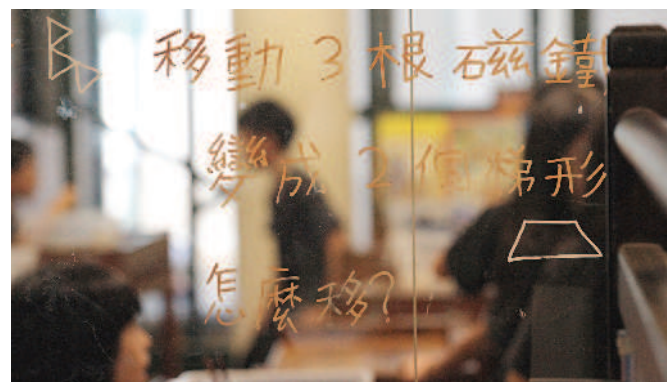 移動3根磁鐵
變成2個梯形
怎麼移?